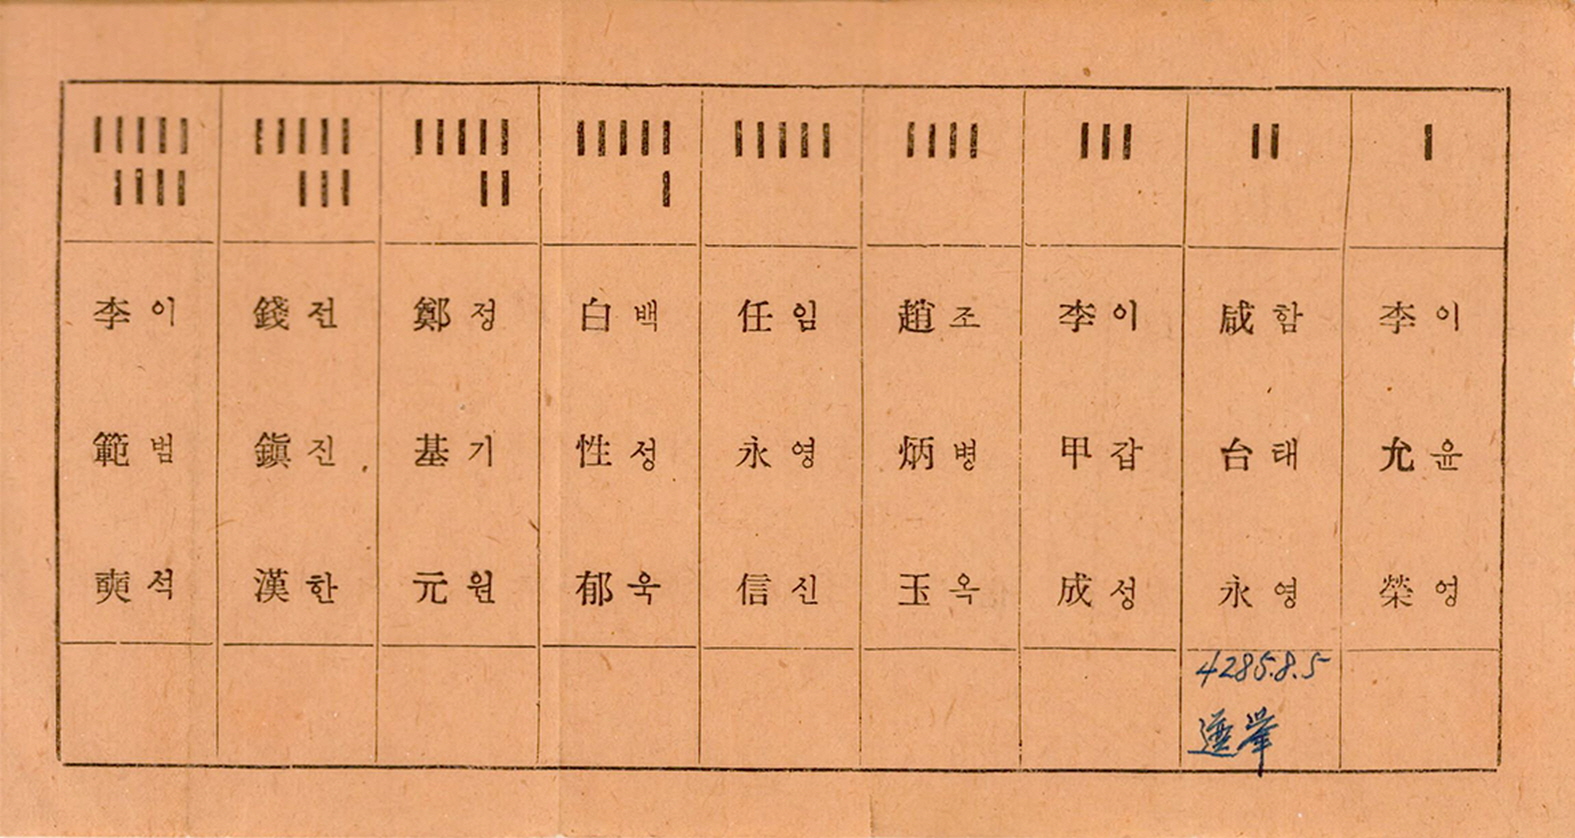 |
李允榮
이윤영
||
咸台永
함태영
4285.8.5
選挙
|||
李甲成
이갑성
||||
趙炳玉
조병옥
|||||
任永信
임영신
||||| |
白性郁
백성욱
||||| ||
鄭基元
정기원
||||| |||
錢鎭漢
전진한
||||| ||||
李範奭
이범석